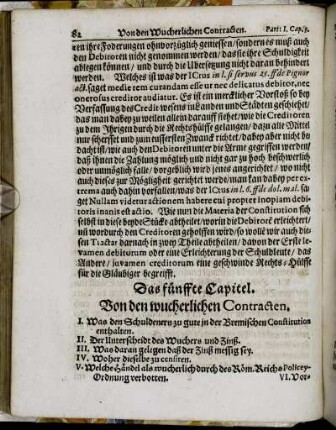 82 Von den Wucherlichen Contracten. Part: I. Cap: 5.
ren ihre Foderungen ohnvorzüglich geniessen/ sondern es muß auch
den Debitoren nicht genommen werden/ das sie ihre Schuldigkeit
ablegen können/ und durch die Ubersetzung nicht daran behindert
werden. Welches ist was der ICtus in l. si servus 25. ff de Pignor
act. saget medie tem curandam esse ut nec delicatus debitor, nec
onerosus creditor audiatur. Es ist ein mercklicher Vorstoß so bey
Verfassung des Credit wesens in Landen und Städten geschiehet/
das man dabey zu weilen allein darauff siehet/ wie die Creditoren
zu dem Ihrigen durch die Rechtshülffe gelangen/ dazu alle Mittel
nur scherpft und zum eussersten Zwanck richtet/ dabey aber nicht be
dacht ist/ wie auch den Debitoren unter die Arme gegriffen werden/
daß ihnen die Zahlung möglich und nicht gar zu hoch beschwerlich
oder unmöglich falle/ vorgeblich wird jenes angerichtet/ wo nicht
auch dieses zur Mögligheit gerichtet worde/ man kan dabey per ex-
trema auch dahin verfallen/ was der ICtus in l. 6. ff de dol. mal. sa
get Nullam videtur actionem habere cui propter inopiam debi-
toris inanis est actio. Wie nun die Materia der Constitution sich
selbst in diese beyde Stücke abtheilet/ worin die Debitorē erleichtert/
uñ wordurch den Creditoren geholffen wird/ so wolle wir auch die-
sen Tractat darnach in zwey Theile abtheilen/ davon der Erste le-
vamen debitorum oder eine Erleichterung der Schuldleute/ das
Andere/ juvamen creditorum eine geschwinde Rechts-Hülffe
für die Gläubiger begreifft.
Das fünffte Capitel.
Von den wucherlichen Contracten.
I. Was den Schuldenern zu gute in der Bremischen Constitution
enthalten.
II. Der Unterscheidt des Wuchers und Zinß.
III. Was daran gelegen daß der Zinß messig sey.
IV. Woher dieselbe zu censiren.
V. Welche Händel als wucherlich durch des Röm. Reichs Policey-
Ordnung verbotten.
VI. Vor-